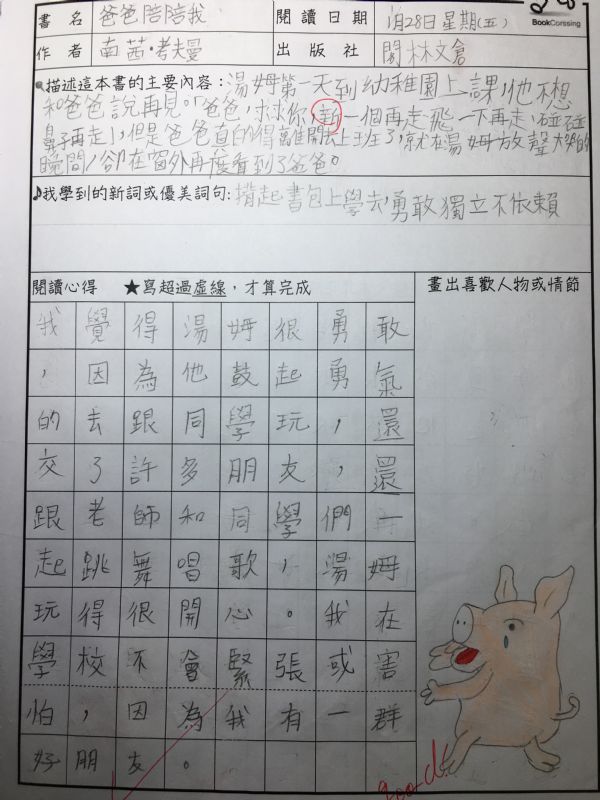 書名 爸爸陪陪我 閱讀日期 1月28日星期(五) BookCorssing
作者 南茜·考夫曼 出版社 閣林文倉
描述這本書的主要內容:湯姆第一天到幼稚園上課,他不想
和爸爸說再見。「爸爸,求求你,一個再走飛一下再走、碰碰
鼻子再走」,但是爸爸真的得離開去上班了,就在湯姆放聲大哭的
瞬間,卻在窗外再度看到了爸爸。
♪我學到的新詞或優美詞句:揹起書包上學去,勇敢獨立不依賴
閱讀心得 ★寫超過虛線,才算完成 畫出喜歡人物或情節
我覺得湯姆很勇敢
,因為他鼓起勇氣
的去跟同學玩,還
交了許多朋友,還
跟老師和同學們一
起跳舞唱歌,湯姆
玩得很開心。我在
學校不會緊張或害
怕,因為我有一群
好朋友。
good